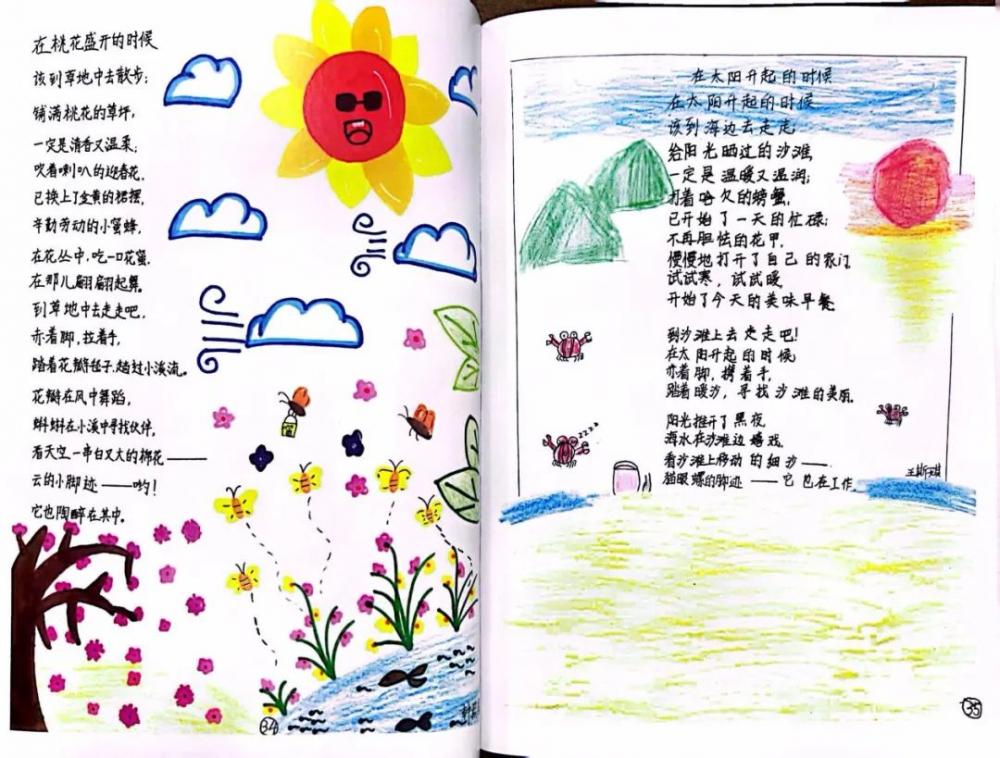 在桃花盛开的时候
该到草地中去散步；
铺满桃花的草坪，
一定是清香又温柔；
吹着喇叭的迎春花，
已换上了金黄的裙摆，
辛勤劳动的小蜜蜂，
在花丛中，吃一口花蜜，
在那儿翩翩起舞。
到草地中去走走吧，
赤着脚，拉着手，
踏着花瓣毯子，趟过小溪流。
花瓣在风中舞蹈，
蝌蚪在小溪中寻找伙伴，
看天空一串白又大的棉花——
云的小脚迹——哟！
它也陶醉在其中。
34
在太阳升起的时候
在太阳升起的时候
该到海边去走走
给阳光晒过的沙滩，
一定是温暖又温润；
打着哈欠的螃蟹，
已开始了一天的忙碌；
不再胆怯的花甲，
慢慢地打开了自己的家门，
试试寒，试试暖，
开始了今天的美味早餐。
到沙滩上去走走吧！
在太阳升起的时候，
赤着脚，携着手，
踏着暖沙，寻找沙滩的美丽。
阳光推开了黑夜，
海水在沙滩边嬉戏，
看沙滩上移动的细沙——
猫眼螺的脚迹——它也在工作。
zzzz
35